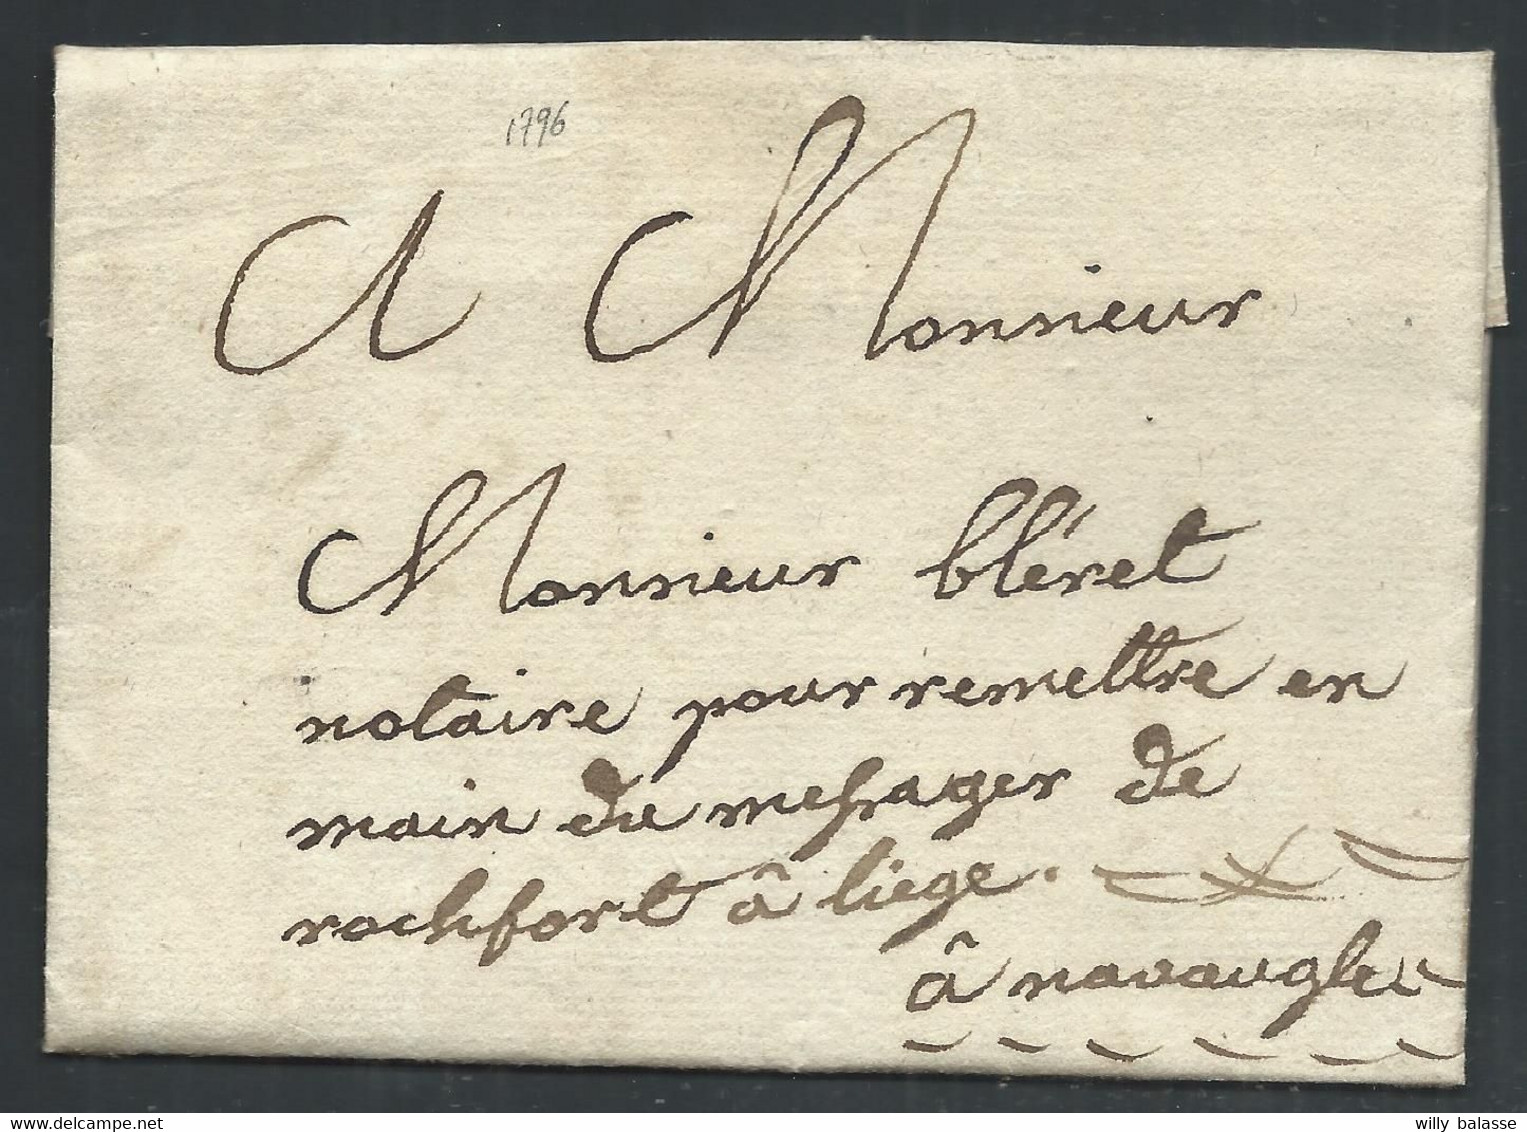 1796
A Monsieur
Monsieur bléret
notaire pour remettre en
main du messager de
rochfort â liege.
â navaugle
willy balasse